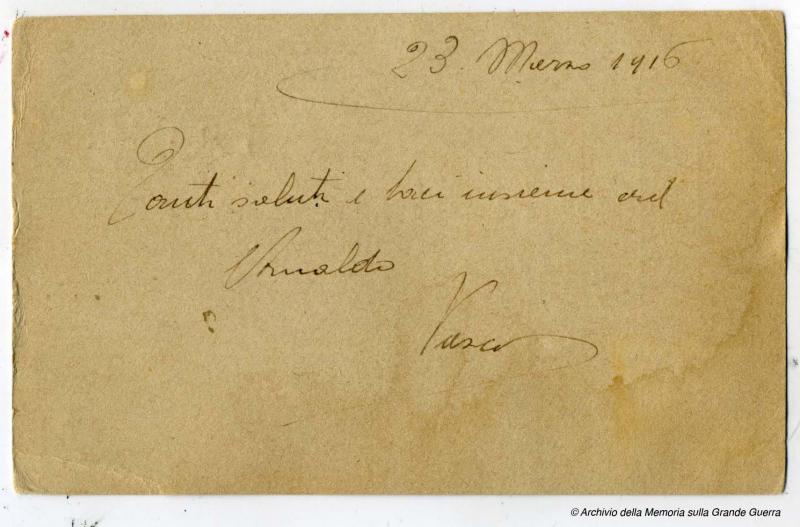 23. Marzo 1916
Tanti saluti e baci insieme ad
Arnaldo
Vasco
© Archivio della Memoria sulla Grande Guerra